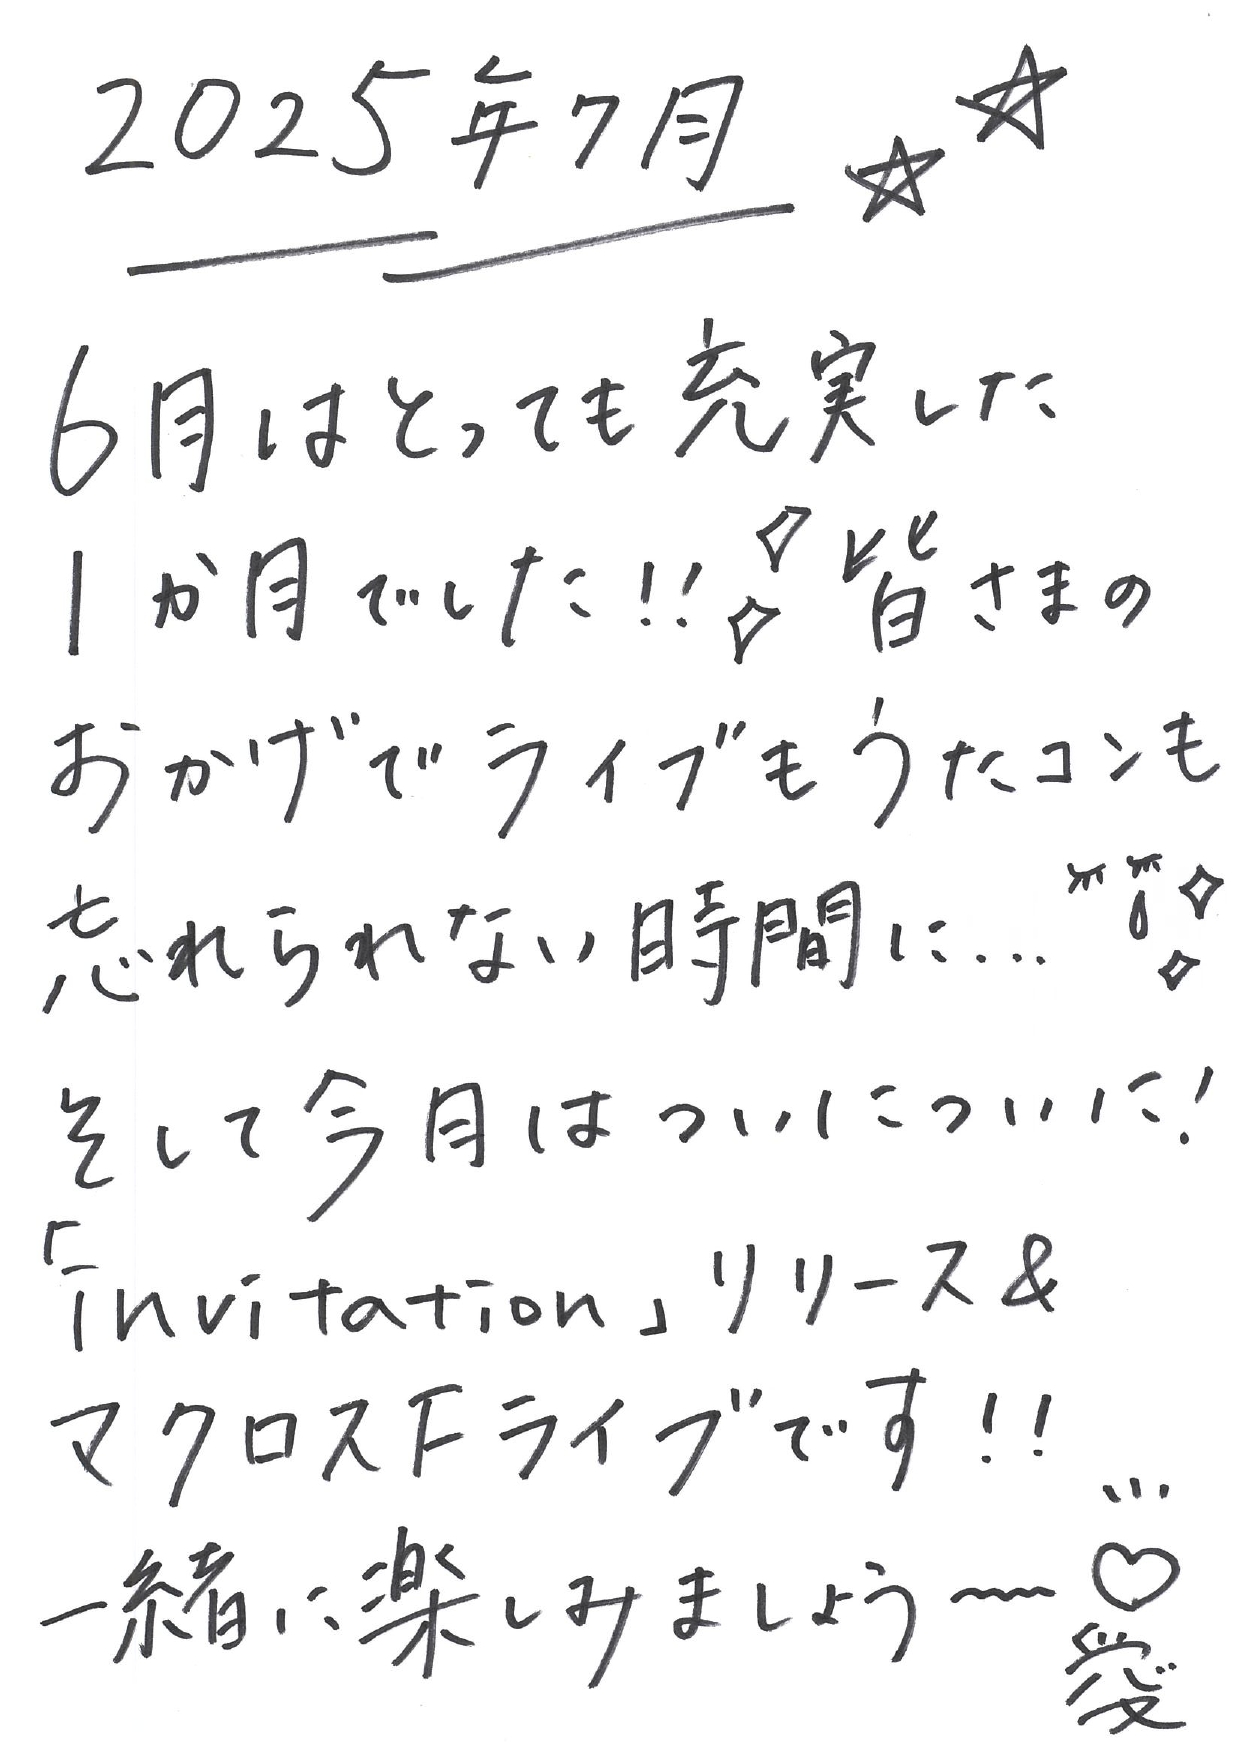 2025年7月
6月はとっても充実した
1か月でした!! 皆さまの
おかげでライブもうたコンも
忘れられない時間に...
そして今月はついについに!
「invitation」リリース&
マクロスFライブです!!
一緒に楽しみましょう〜♡
愛